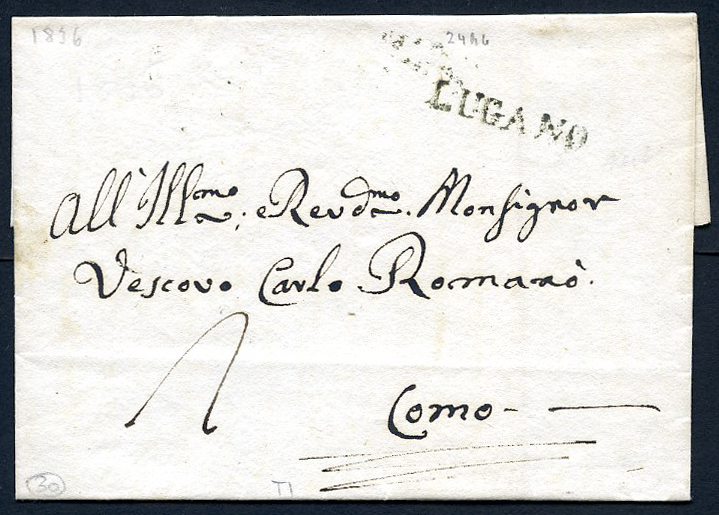 1836
24 AG
LUGANO
All' Ill.mo e Rev.dmo Monsignor
Vescovo Carlo Romanò.
Como -
30
TI